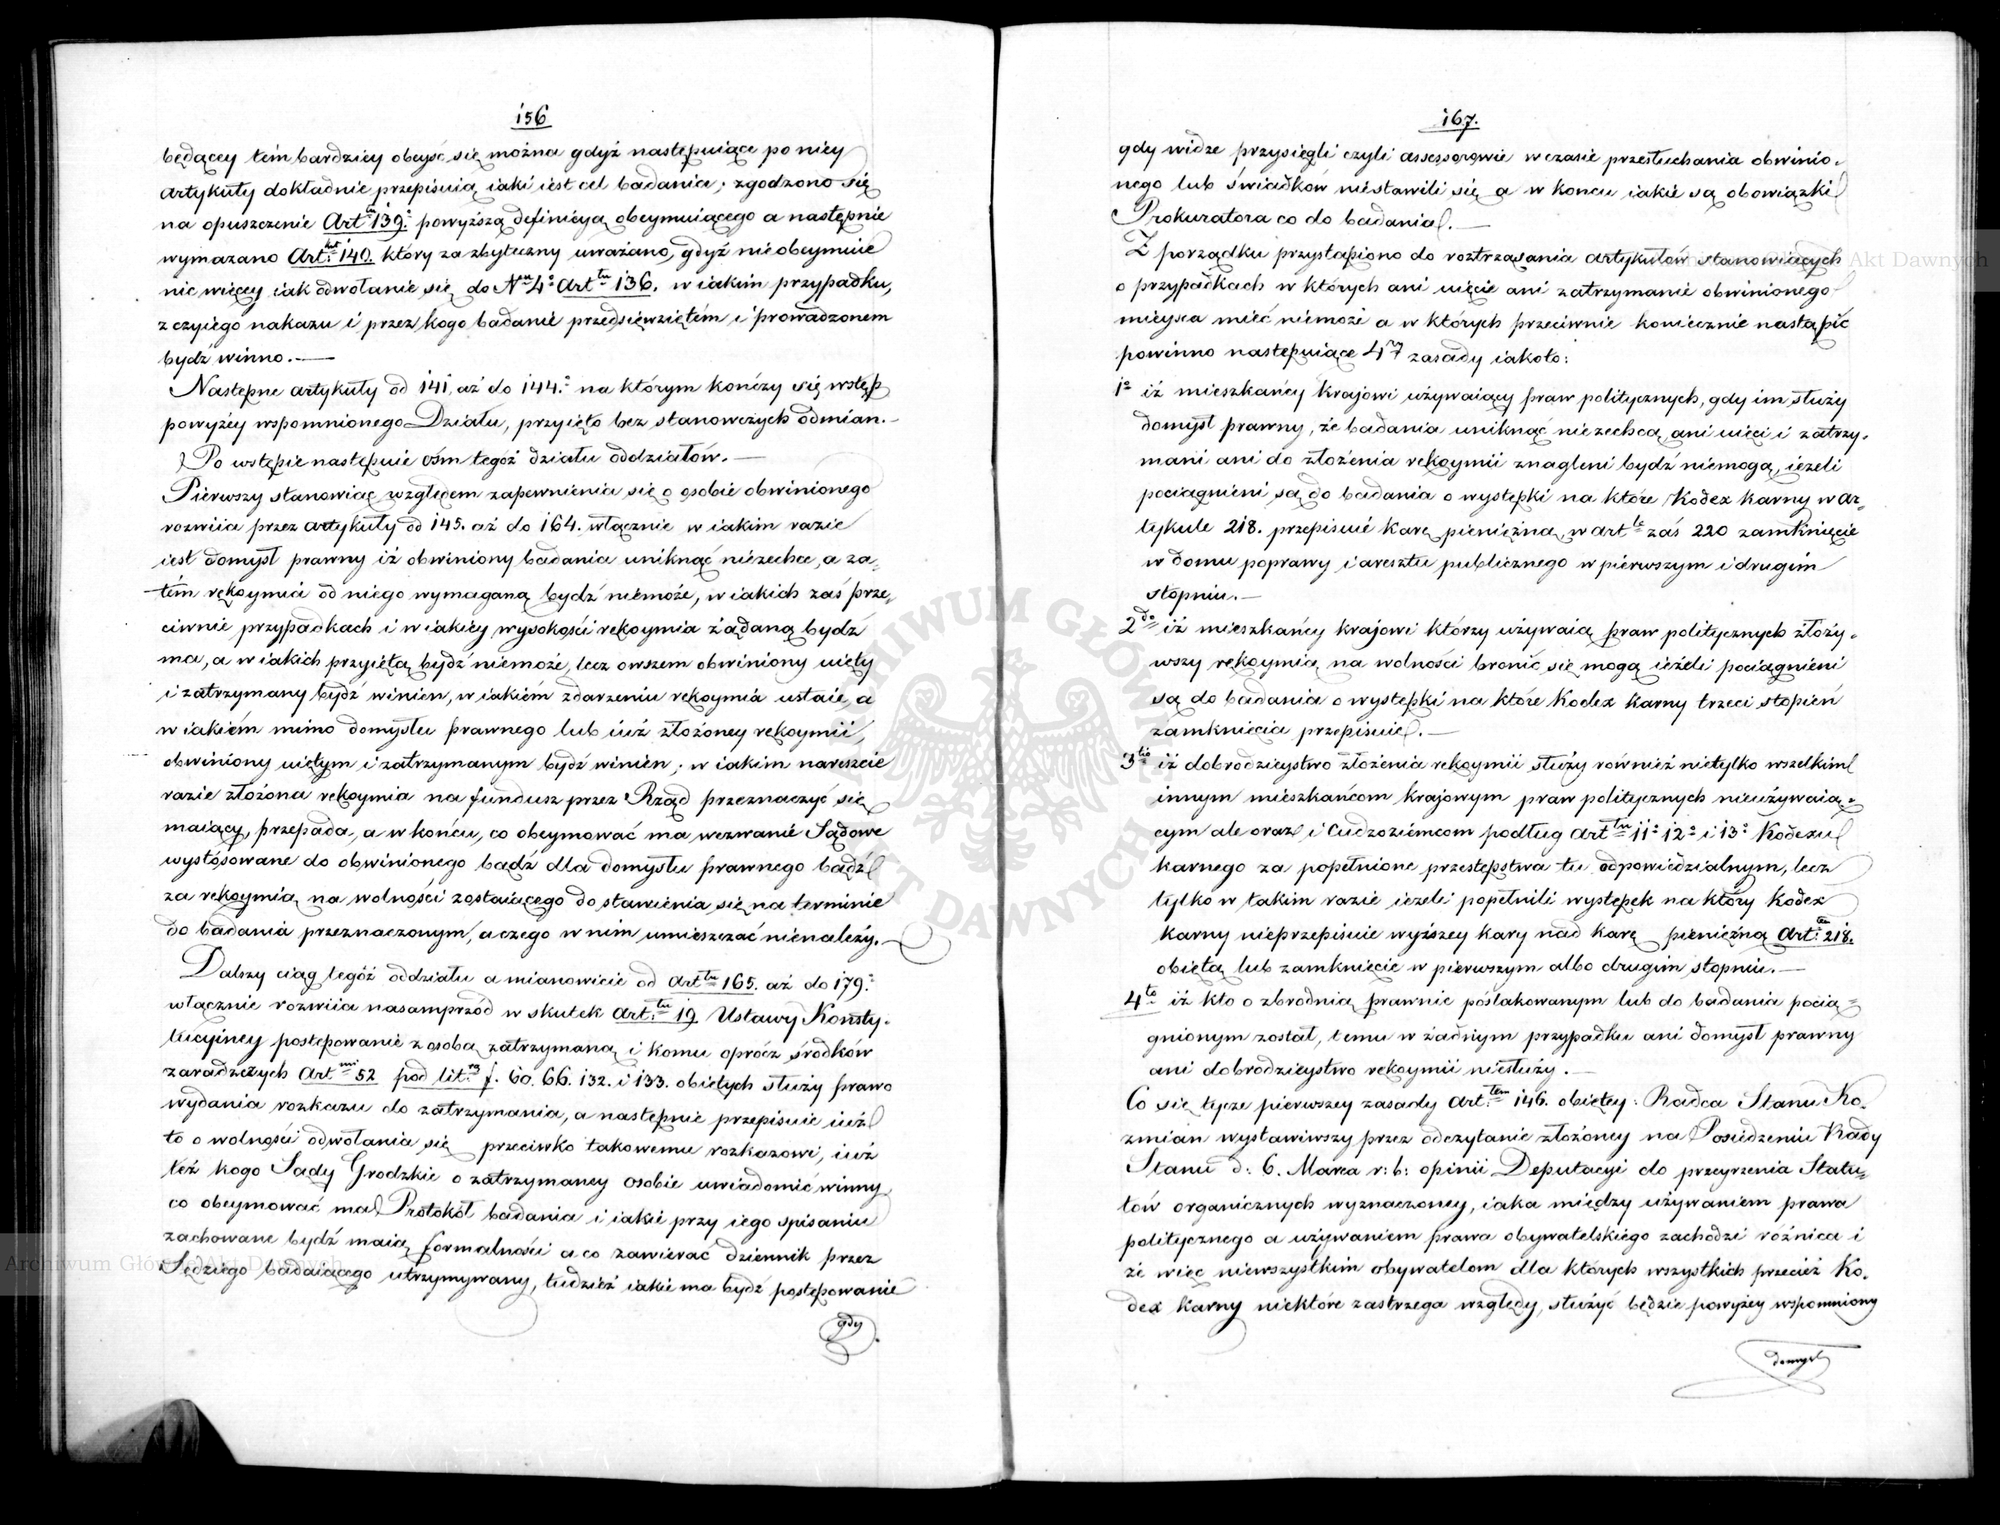 156
będącey tém bardziey obeyść się można gdyż następuiące po niey
artykuły dokładnie przepisuią iaki iest cel badania; zgodzono się
na opuszczenie Art: 139. powyższą definicyą obeymuiącego a następnie
wymazano Art: 140. który za zbyteczny uważano, gdyż nie obeymuie
nic więcey iak odwołanie się do Nru 4o Arttu 136. w iakim przypadku,
z czyiego nakazu i przez kogo badanie przedsięwziętém i prowadzonem
bydź winno.—
Następne artykuły od 141. aż do 144. na którym kończy się wstęp
powyżey wspomnionego Działu, przyięto bez stanowczych odmian.—
Po wstępie następuie ośm tegoż działu oddziałów.—
Pierwszy stanowiąc względem zapewnienia się o osobie obwinionego
rozwiia przez artykuły od 145. aż do 164. włącznie w iakim razie
iest domysł prawny iż obwiniony badania uniknąć niezechce, a za-
tém rękoymia od niego wymaganą bydź niemoże, w iakich zaś prze-
ciwnie przypadkach i w iakiey wysokości rękoymia żądaną bydź
ma, a w iakich przyiętą bydź niemoże, lecz owszem obwiniony uięty
i zatrzymany bydź winien, w iakiém zdarzeniu rękoymia ustaie, a
w iakiém mimo domysłu prawnego lub iuż złożoney rękoymii,
obwiniony uiętym i zatrzymanym bydź winien; w iakim nareszcie
razie złożona rękoymia na fundusz przez Rząd przeznaczyć się
maiący, przepada, a w końcu, co obeymować ma wezwanie Sądowe
wystósowane do obwinionego bądź dla domysłu prawnego bądź
za rękoymią na wolności zostaiącego do stawienia się na terminie
do badania przeznaczonym, a czego w nim umieszczać nienależy.—
Dalszy ciąg tegóż oddziału a mianowicie od Arttu 165. aż do 179.
włącznie rozwiia nasamprzód w skutek Arttu 19 Ustawy Konsty-
tucyiney postępowanie z osobą zatrzymaną i komu oprócz środków
zaradczych Art mi 52 pod lit: f. 60. 66. 132. i 133. obiętych służy prawo
wydania rozkazu do zatrzymania, a następnie przepisuie iuż
to o wolności odwołania się przeciwko takowemu rozkazowi, iuż
też kogo Sądy Grodzkie o zatrzymaney osobie uwiadomić winny,
co obeymować ma Protokół badania i iakie przy iego spisaniu
zachowane bydź maią formalności a co zawierać dziennik przez
Sędziego badaiącego utrzymywany, tudzież iakie ma bydź postępowanie
gdy
167.
gdy widze przysięgli czyli assessorowie w czasie przesłuchania obwinio-
nego lub świadków niestawili się a w koncu iakie są obowiązki
Prokuratora co do badania.—
Z porządku przystąpiono do roztrząsania artykułów stanowiących
o przypadkach w których ani uięcie ani zatrzymanie obwinionego
mieysca mieć niemoże a w których przeciwnie koniecznie nastąpić
powinno następuiące 4ry zasady iakoto:
1o iż mieszkańcy krajowi używaiący praw politycznych, gdy im służy
domysł prawny, że badania uniknąć niezechcą, ani uięci i zatrzy-
mani ani do złożenia rękoymii znagleni bydź niemogą, ieżeli
pociągnieni są do badania o występki na które Kodex karny w ar-
tykule 218. przepisuie karę pieniężną, w artle zaś 220 zamknięcie
w domu poprawy i aresztu publicznego w pierwszym i drugim
stopniu.—
2do iż mieszkańcy krajowi którzy używaią praw politycznych złoży-
wszy rękoymią na wolności bronić się mogą ieżeli pociągnieni
są do badania o występki na które Kodex karny trzeci stopień
zamknięcia przepisuie.—
3tio iż dobrodzieystwo złożenia rękoymii służy również nietylko wszelkim
innym mieszkańcom krajowym praw politycznych nieużywaią-
cym ale oraz i Cudzoziemcom podług Arttu 11o 12o i 13o Kodexu
karnego za popełnione przestępstwa tu odpowiedzialnym, lecz
tylko w takim razie ieżeli popełnili występek na który Kodex
karny nieprzepisuie wyższey kary nad karę pieniężną Arttem 218.
obiętą lub zamknięcie w pierwszym albo drugim stopniu.—
4to iż kto o zbrodnią prawnie poślakowanym lub do badania pocią-
gnionym został, temu w żadnym przypadku ani domysł prawny
ani dobrodzieystwo rękoymii niesłuży.—
Co się tycze pierwszey zasady Arttem 146. obiętey: Radca Stanu Ko-
zmian wystawiwszy przez odczytanie złożoney na Posiedzeniu Rady
Stanu d: 6. Marca r: b: opinii Deputacyi do przeyrzenia Statu-
tów organicznych wyznaczoney, iaka między używaniem prawa
politycznego a używaniem prawa obywatelskiego zachodzi różnica i
że więc niewszystkim obywatelom dla których wszystkich przecież Ko-
dex karny niektóre zastrzega względy, służyć będzie powyżey wspomniony
domysł
ARCHIWUM GŁÓWNE AKT DAWNYCH
Archiwum Główne Akt Dawnych
Akt Dawnych